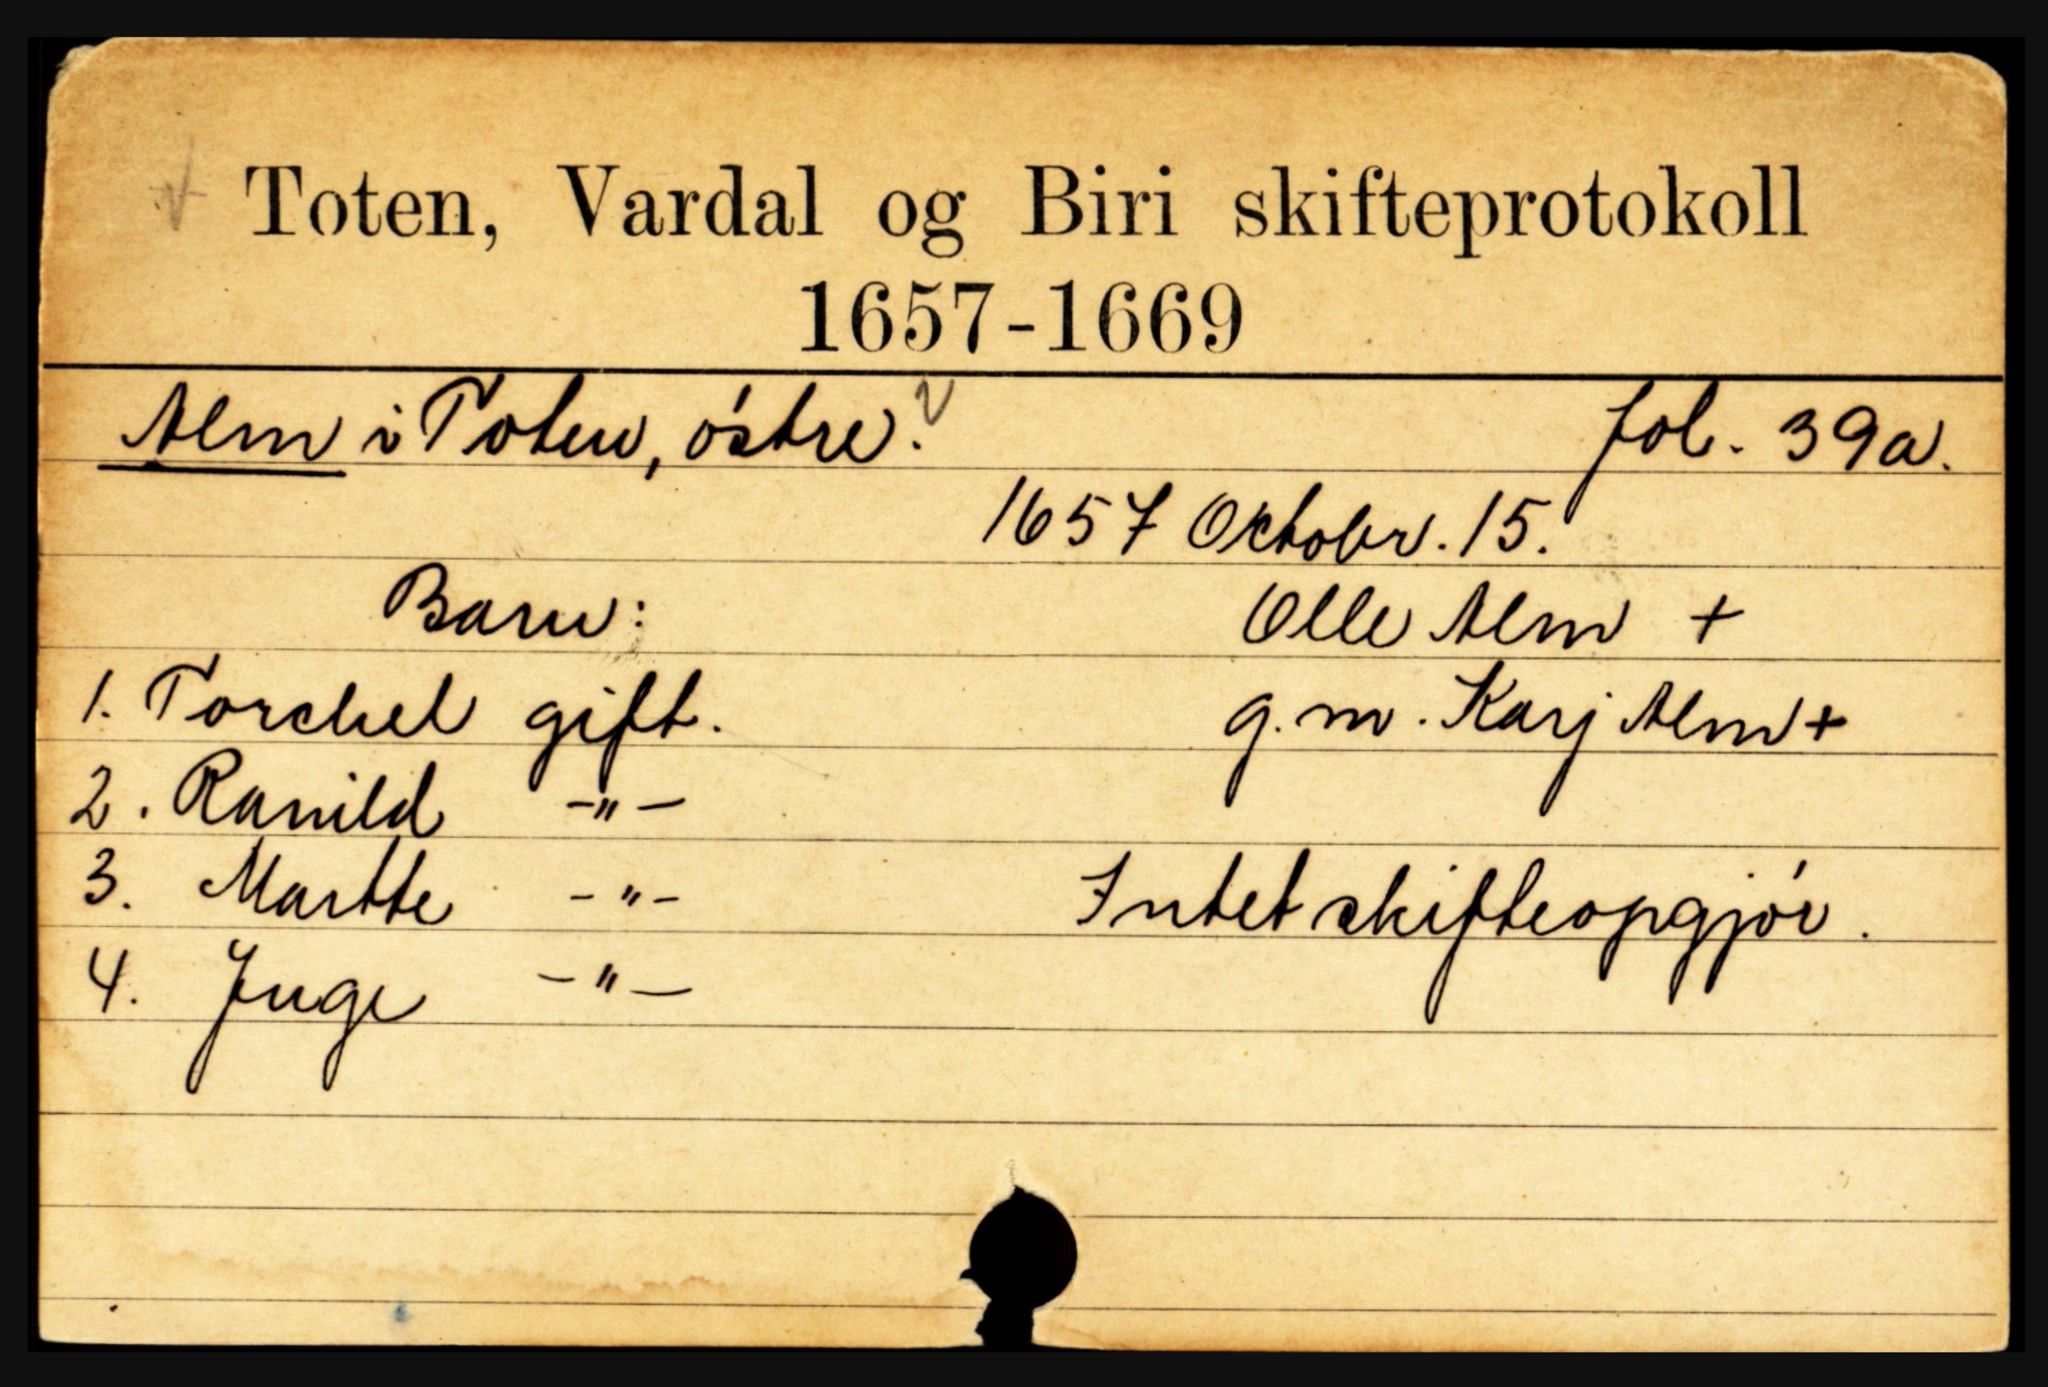 Toten, Vardal og Biri skifteprotokoll
1657-1669
Alm i Toten, østre. fol. 39a.
1657 Octobr. 15.
Barn: Olle Alm +
1. Torchel gift. g. m. Karj Alm +
2. Ranild -"-
3. Martte -"- Intet skifteopgjör.
4. Inge -"-